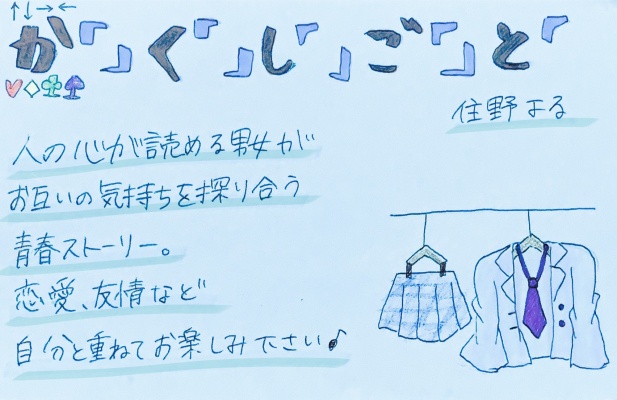 ↑↓→←
か「」く「」し「」ご「」と「
♡◇♧♤
住野よる
人の心が読める男女が
お互いの気持ちを探り合う
青春ストーリー。
恋愛、友情など
自分と重ねてお楽しみ下さい♪